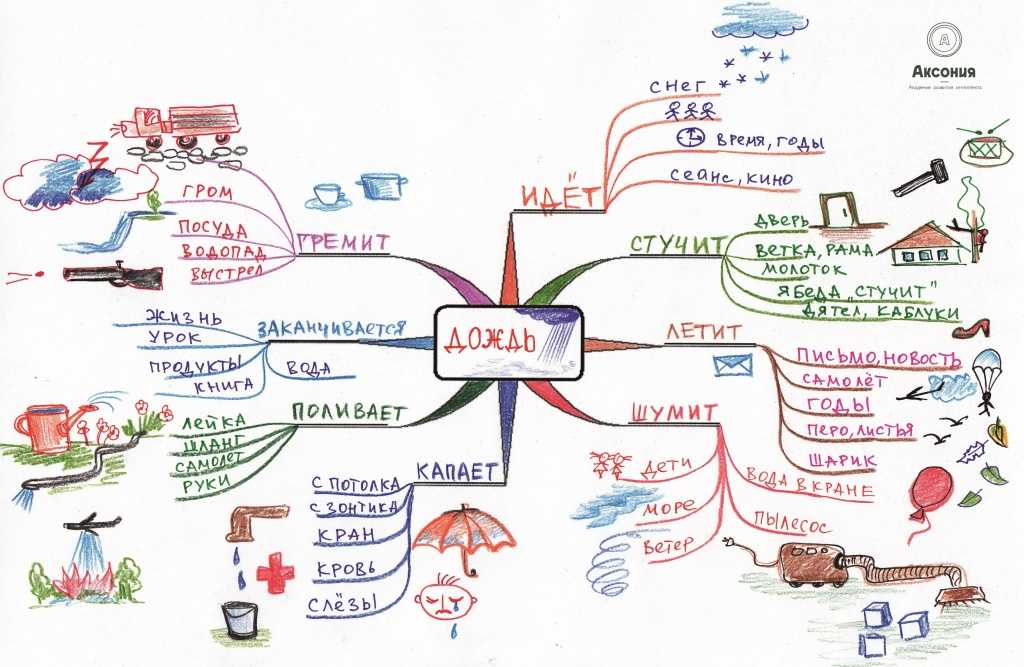 Аксония
Академия развития интеллекта
ДОЖДЬ
ИДЁТ
СНЕГ
ВРЕМЯ, ГОДЫ
СЕАНС, КИНО
СТУЧИТ
ДВЕРЬ
ВЕТКА, РАМА
МОЛОТОК
ЯБЕДА „СТУЧИТ"
ДЯТЕЛ, КАБЛУКИ
ЛЕТИТ
ПИСЬМО, НОВОСТЬ
САМОЛЁТ
ГОДЫ
ПЕРО, ЛИСТЬЯ
ШАРИК
ШУМИТ
ДЕТИ
МОРЕ
ВЕТЕР
ВОДА В КРАНЕ
ПЫЛЕСОС
КАПАЕТ
С ПОТОЛКА
С ЗОНТИКА
КРАН
КРОВЬ
СЛЁЗЫ
ПОЛИВАЕТ
ЛЕЙКА
ШЛАНГ
САМОЛЕТ
РУКИ
ЗАКАНЧИВАЕТСЯ
ЖИЗНЬ
УРОК
ПРОДУКТЫ
КНИГА
ВОДА
ГРЕМИТ
ГРОМ
ПОСУДА
ВОДОПАД
ВЫСТРЕЛ